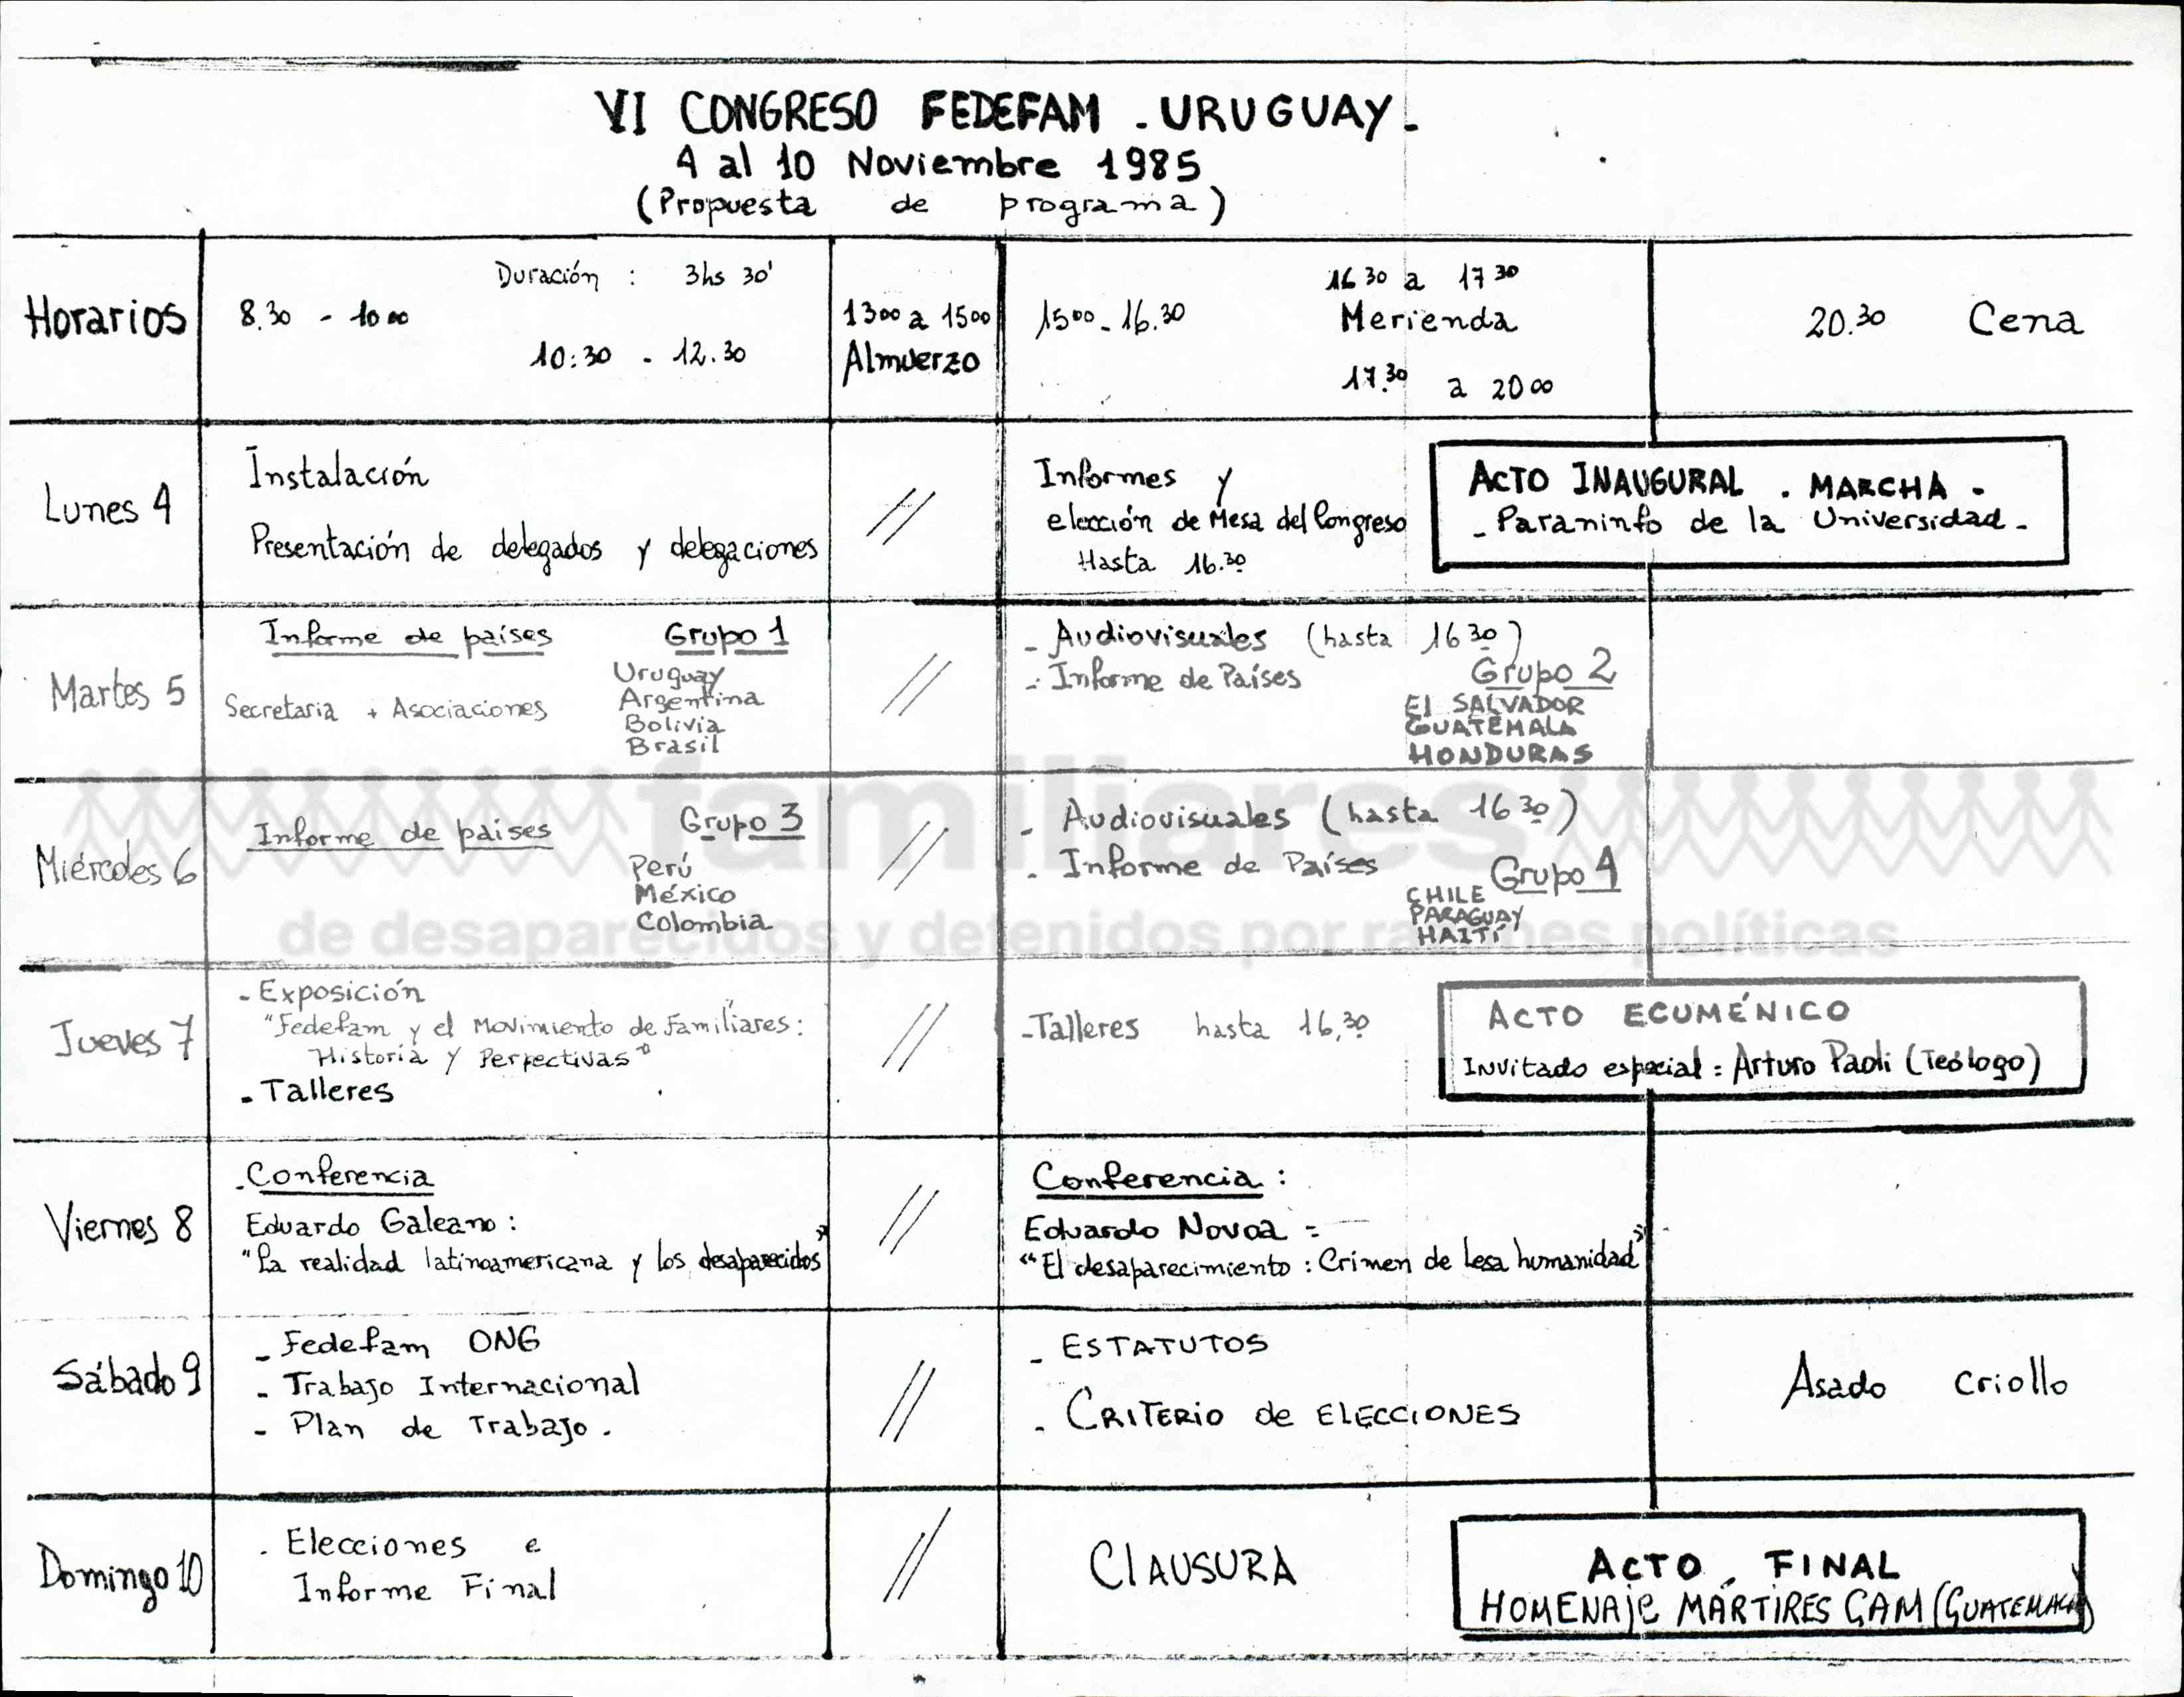 VI CONGRESO FEDEFAM - URUGUAY -
4 al 10 Noviembre 1985
(Propuesta de programa)
Horarios
Duración : 3hs 30'
8.30 - 10 00
10:30 - 12.30
13 00 a 15 00
Almuerzo
15 00 - 16.30
16 30 a 17 30
Merienda
17.30 a 20 00
20.30 Cena
Lunes 4
Instalación
Presentación de delegados y delegaciones
//
Informes y
elección de Mesa del Congreso
Hasta 16.30
ACTO INAUGURAL . MARCHA -
- Paraninfo de la Universidad -
Martes 5
Informe de países
Secretaria + Asociaciones
Grupo 1
Uruguay
Argentina
Bolivia
Brasil
//
- Audiovisuales (hasta 16 30)
- Informe de Países
Grupo 2
El SALVADOR
GUATEMALA
HONDURAS
familiares
de desaparecidos y detenidos por razones políticas
Miércoles 6
Informe de paises
Grupo 3
Perú
México
Colombia
//
- Audiovisuales (hasta 16 30)
- Informe de Países
Grupo 4
CHILE
PARAGUAY
HAITÍ
Jueves 7
- Exposición
"Fedefam y el Movimiento de Familiares:
Historia y Perpectivas"
- Talleres
//
- Talleres hasta 16,30
ACTO ECUMÉNICO
Invitado especial : Arturo Paoli (Teólogo)
Viernes 8
- Conferencia
Eduardo Galeano :
"La realidad latinoamericana y los desaparecidos"
//
Conferencia :
Eduardo Novoa =
"El desaparecimiento : Crimen de lesa humanidad"
Sábado 9
- Fedefam ONG
- Trabajo Internacional
- Plan de Trabajo.
//
- ESTATUTOS
- CRITERIO de ELECCIONES
Asado criollo
Domingo 10
. Elecciones e
Informe Final
//
ClAUSURA
ACTO . FINAL
HOMENAJE MÁRTIRES GAM (GUATEMALA)